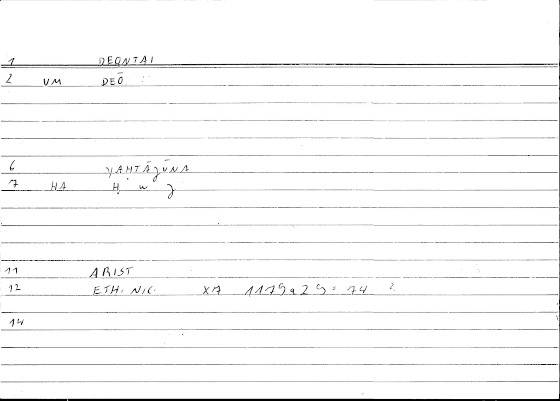 1 DEONTAI
2 VM DEŌ
6 YAḤTĀǦŪNA
7 HA Ḥ w ǧ
11 ARIST
12 ETH. NIC. X7 1179a25 = 74
14